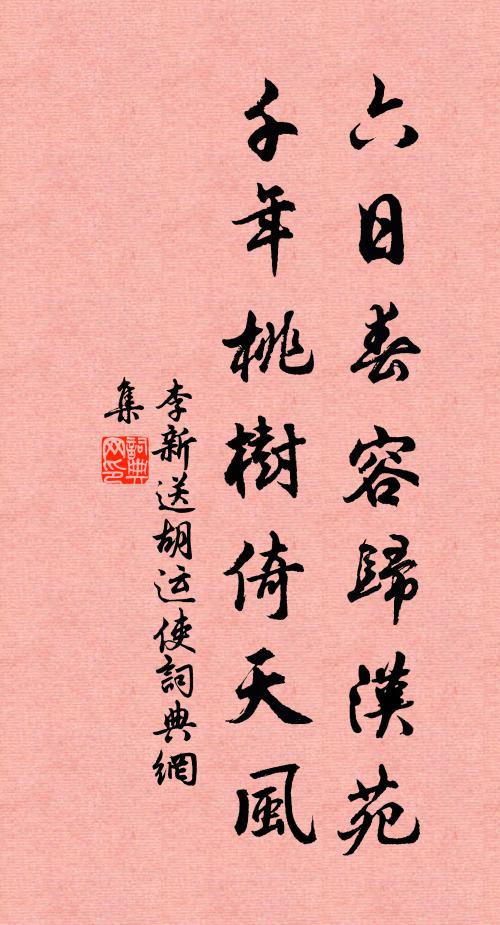 六日春容歸漢苑
千年桃樹倚天風
李新送胡运使詞典網
集
詞典網印